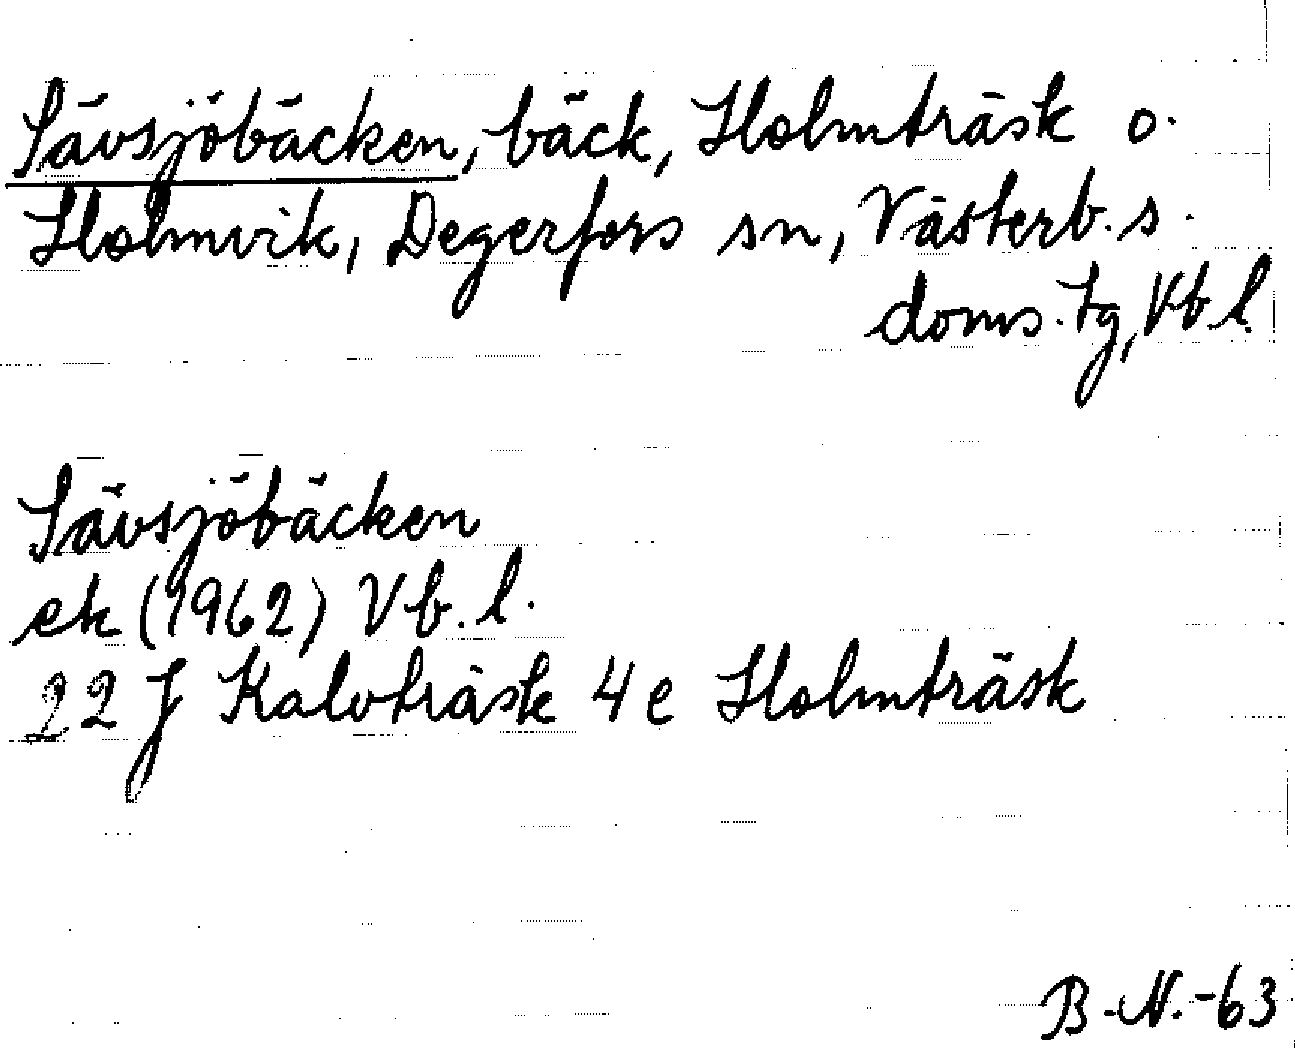 Sävsjöbäcken, bäck, Holmträsk o.
Holmvik, Degerfors sn, Västerb. s.
doms. tg, Vb l.
Sävsjöbäcken
ek (1962) Vb. l.
22 J Kalvträsk 4 e Holmträsk
B-N.-63